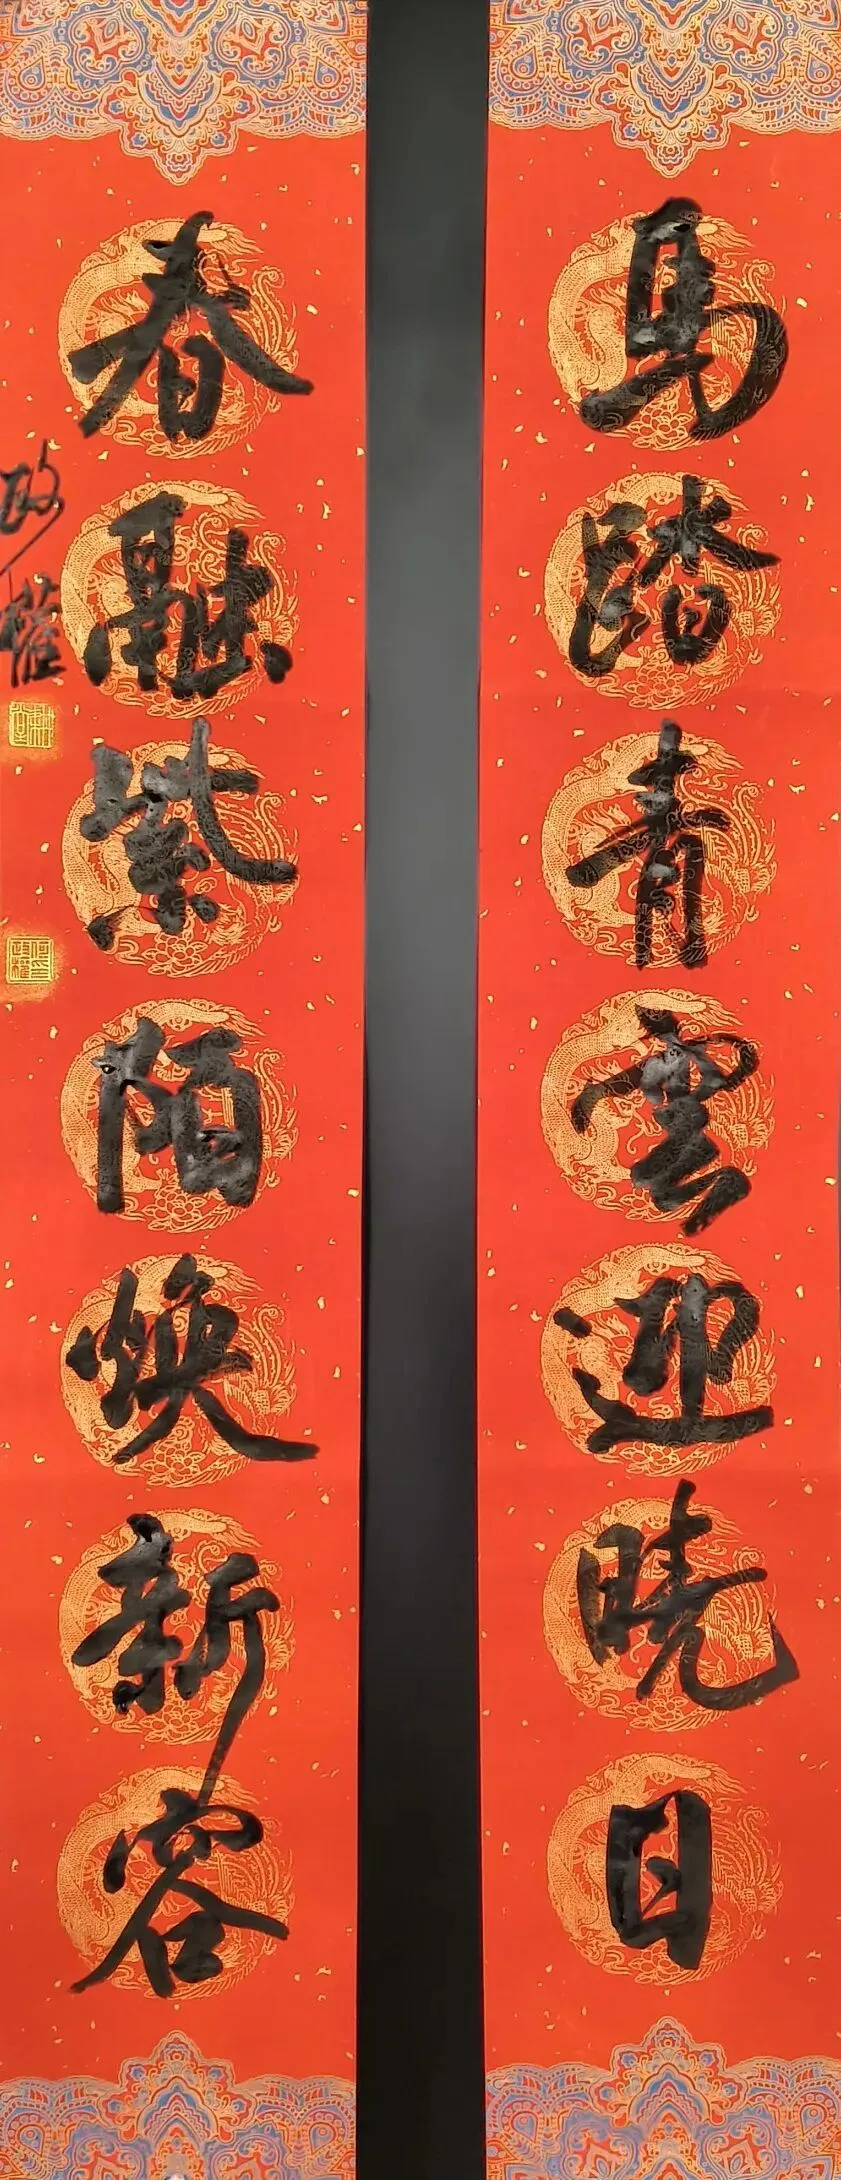 馬踏青雲迎曉日
春融紫陌煥新容
政權